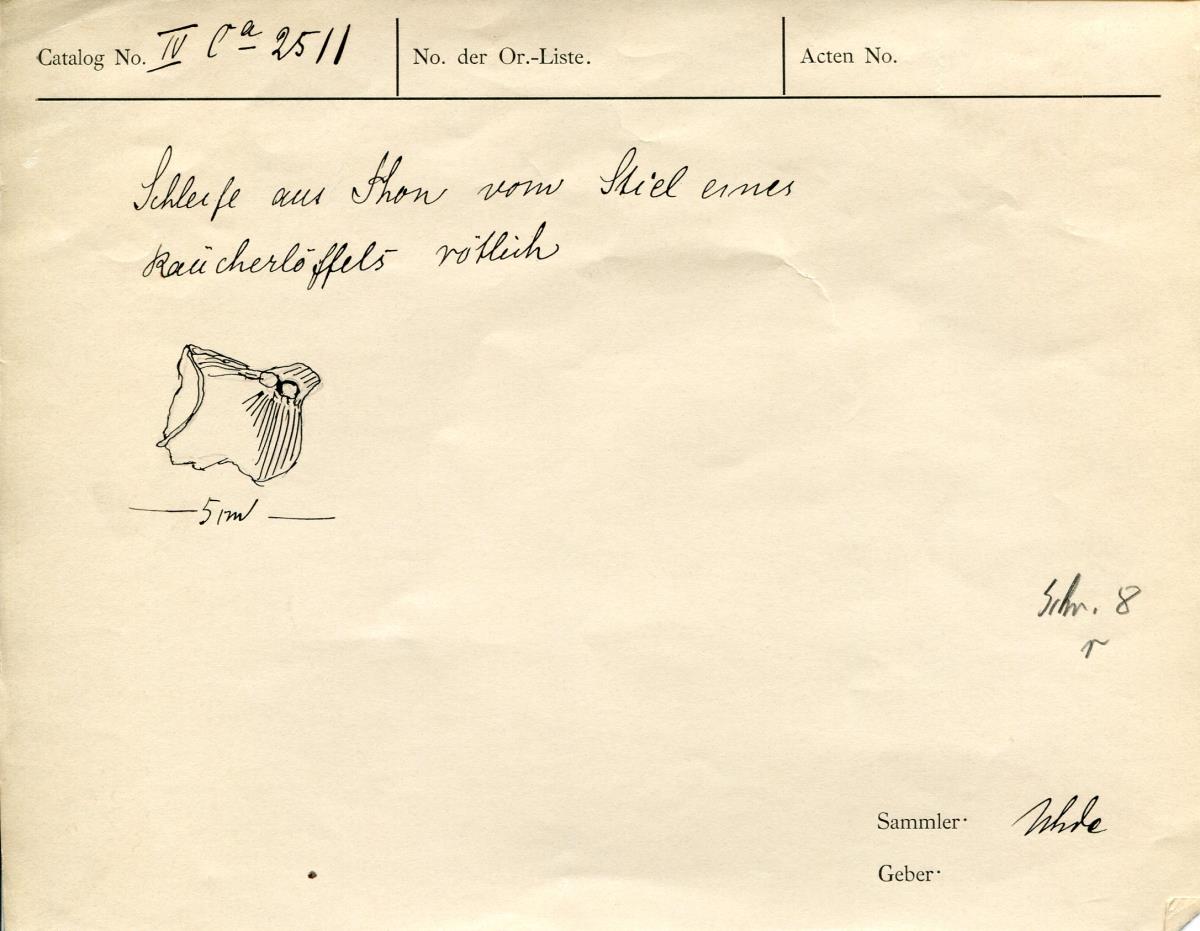 Catalog No. IV Ca 2511
No. der Or.-Liste.
Acten No.
Schleife aus Thon vom Stiel eines
Raücherlöffels rötlich
5 cm
Schr. 8
r
Sammler·
Uhde
Geber·